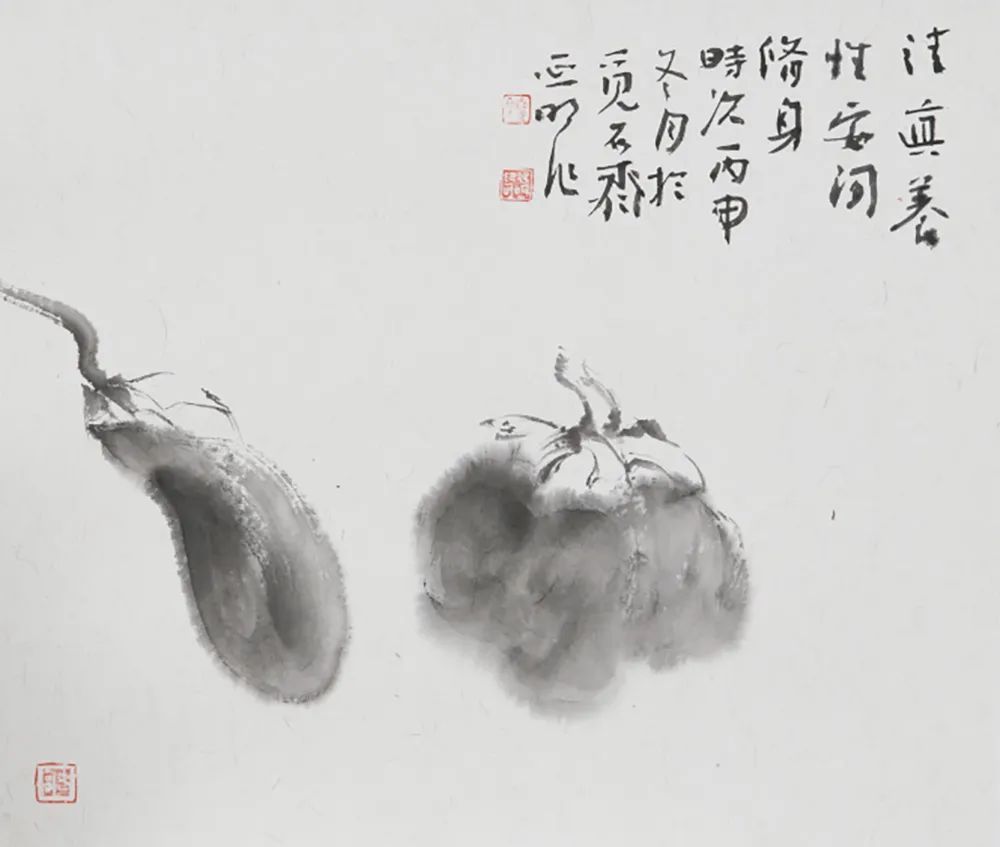 清真養
性安閒
脩身
時次丙申
冬月於
覓石齋
明作